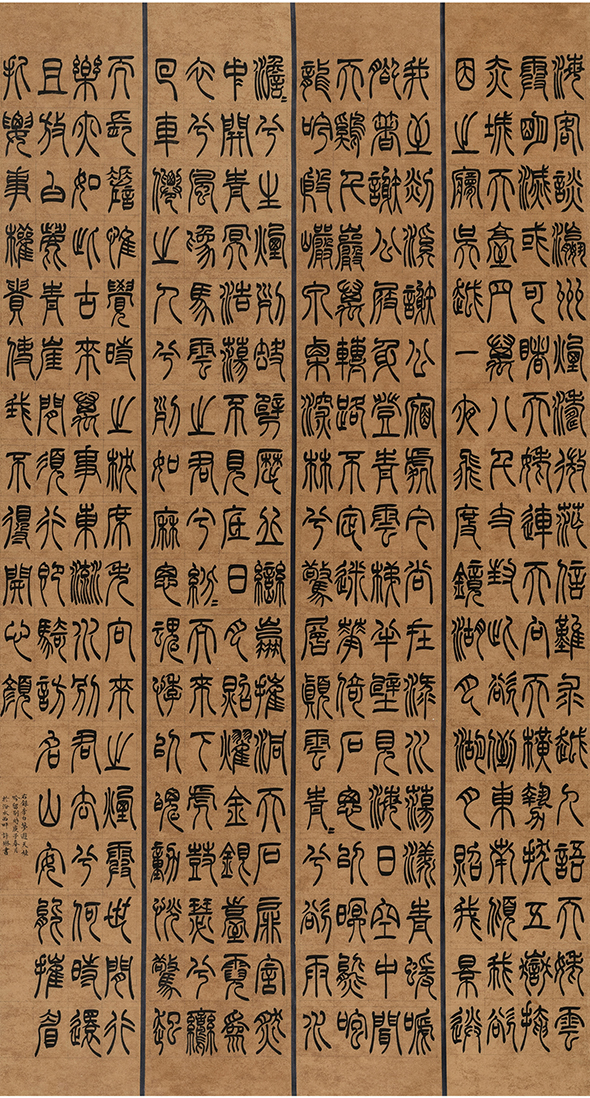 海客談瀛洲煙濤微茫信難求越人語天姥雲
霞明滅或可睹天姥連天向天橫勢拔五嶽掩
赤城天臺四萬八千丈對此欲倒東南傾我欲
因之夢吳越一夜飛度鏡湖月湖月照我影送
我至剡溪謝公宿處今尚在淥水蕩漾青猿啼
腳著謝公屐身登青雲梯半壁見海日空中聞
天雞千巖萬轉路不定迷花倚石忽已暝熊咆
龍吟殷巖泉慄深林兮驚層巔雲青=兮欲雨水
澹=兮生煙列缺霹靂丘巒崩摧洞天石扉訇然
中開青冥浩蕩不見底日月照耀金銀臺霓為
衣兮風為馬雲之君兮紛=而來下虎鼓瑟兮鸞
回車仙之人兮列如麻忽魂悸以魄動怳驚起
而長嗟惟覺時之枕席失向來之煙霞世間行
樂亦如此古來萬事東流水別君去兮何時還
且放白鹿青崖間須行即騎訪名山安能摧眉
折腰事權貴使我不得開心顏
右錄李白夢遊天姥
吟留別